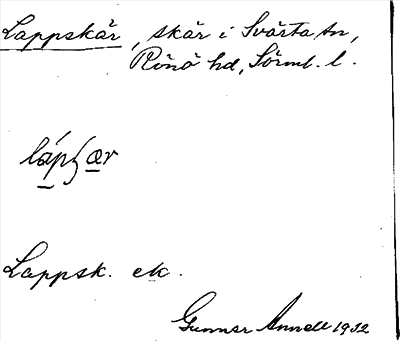 Lappskär, skär i Svärta sn,
Rönö hd, Sörml. l.
Lappsk. ek.
Gunnar Annell 1932